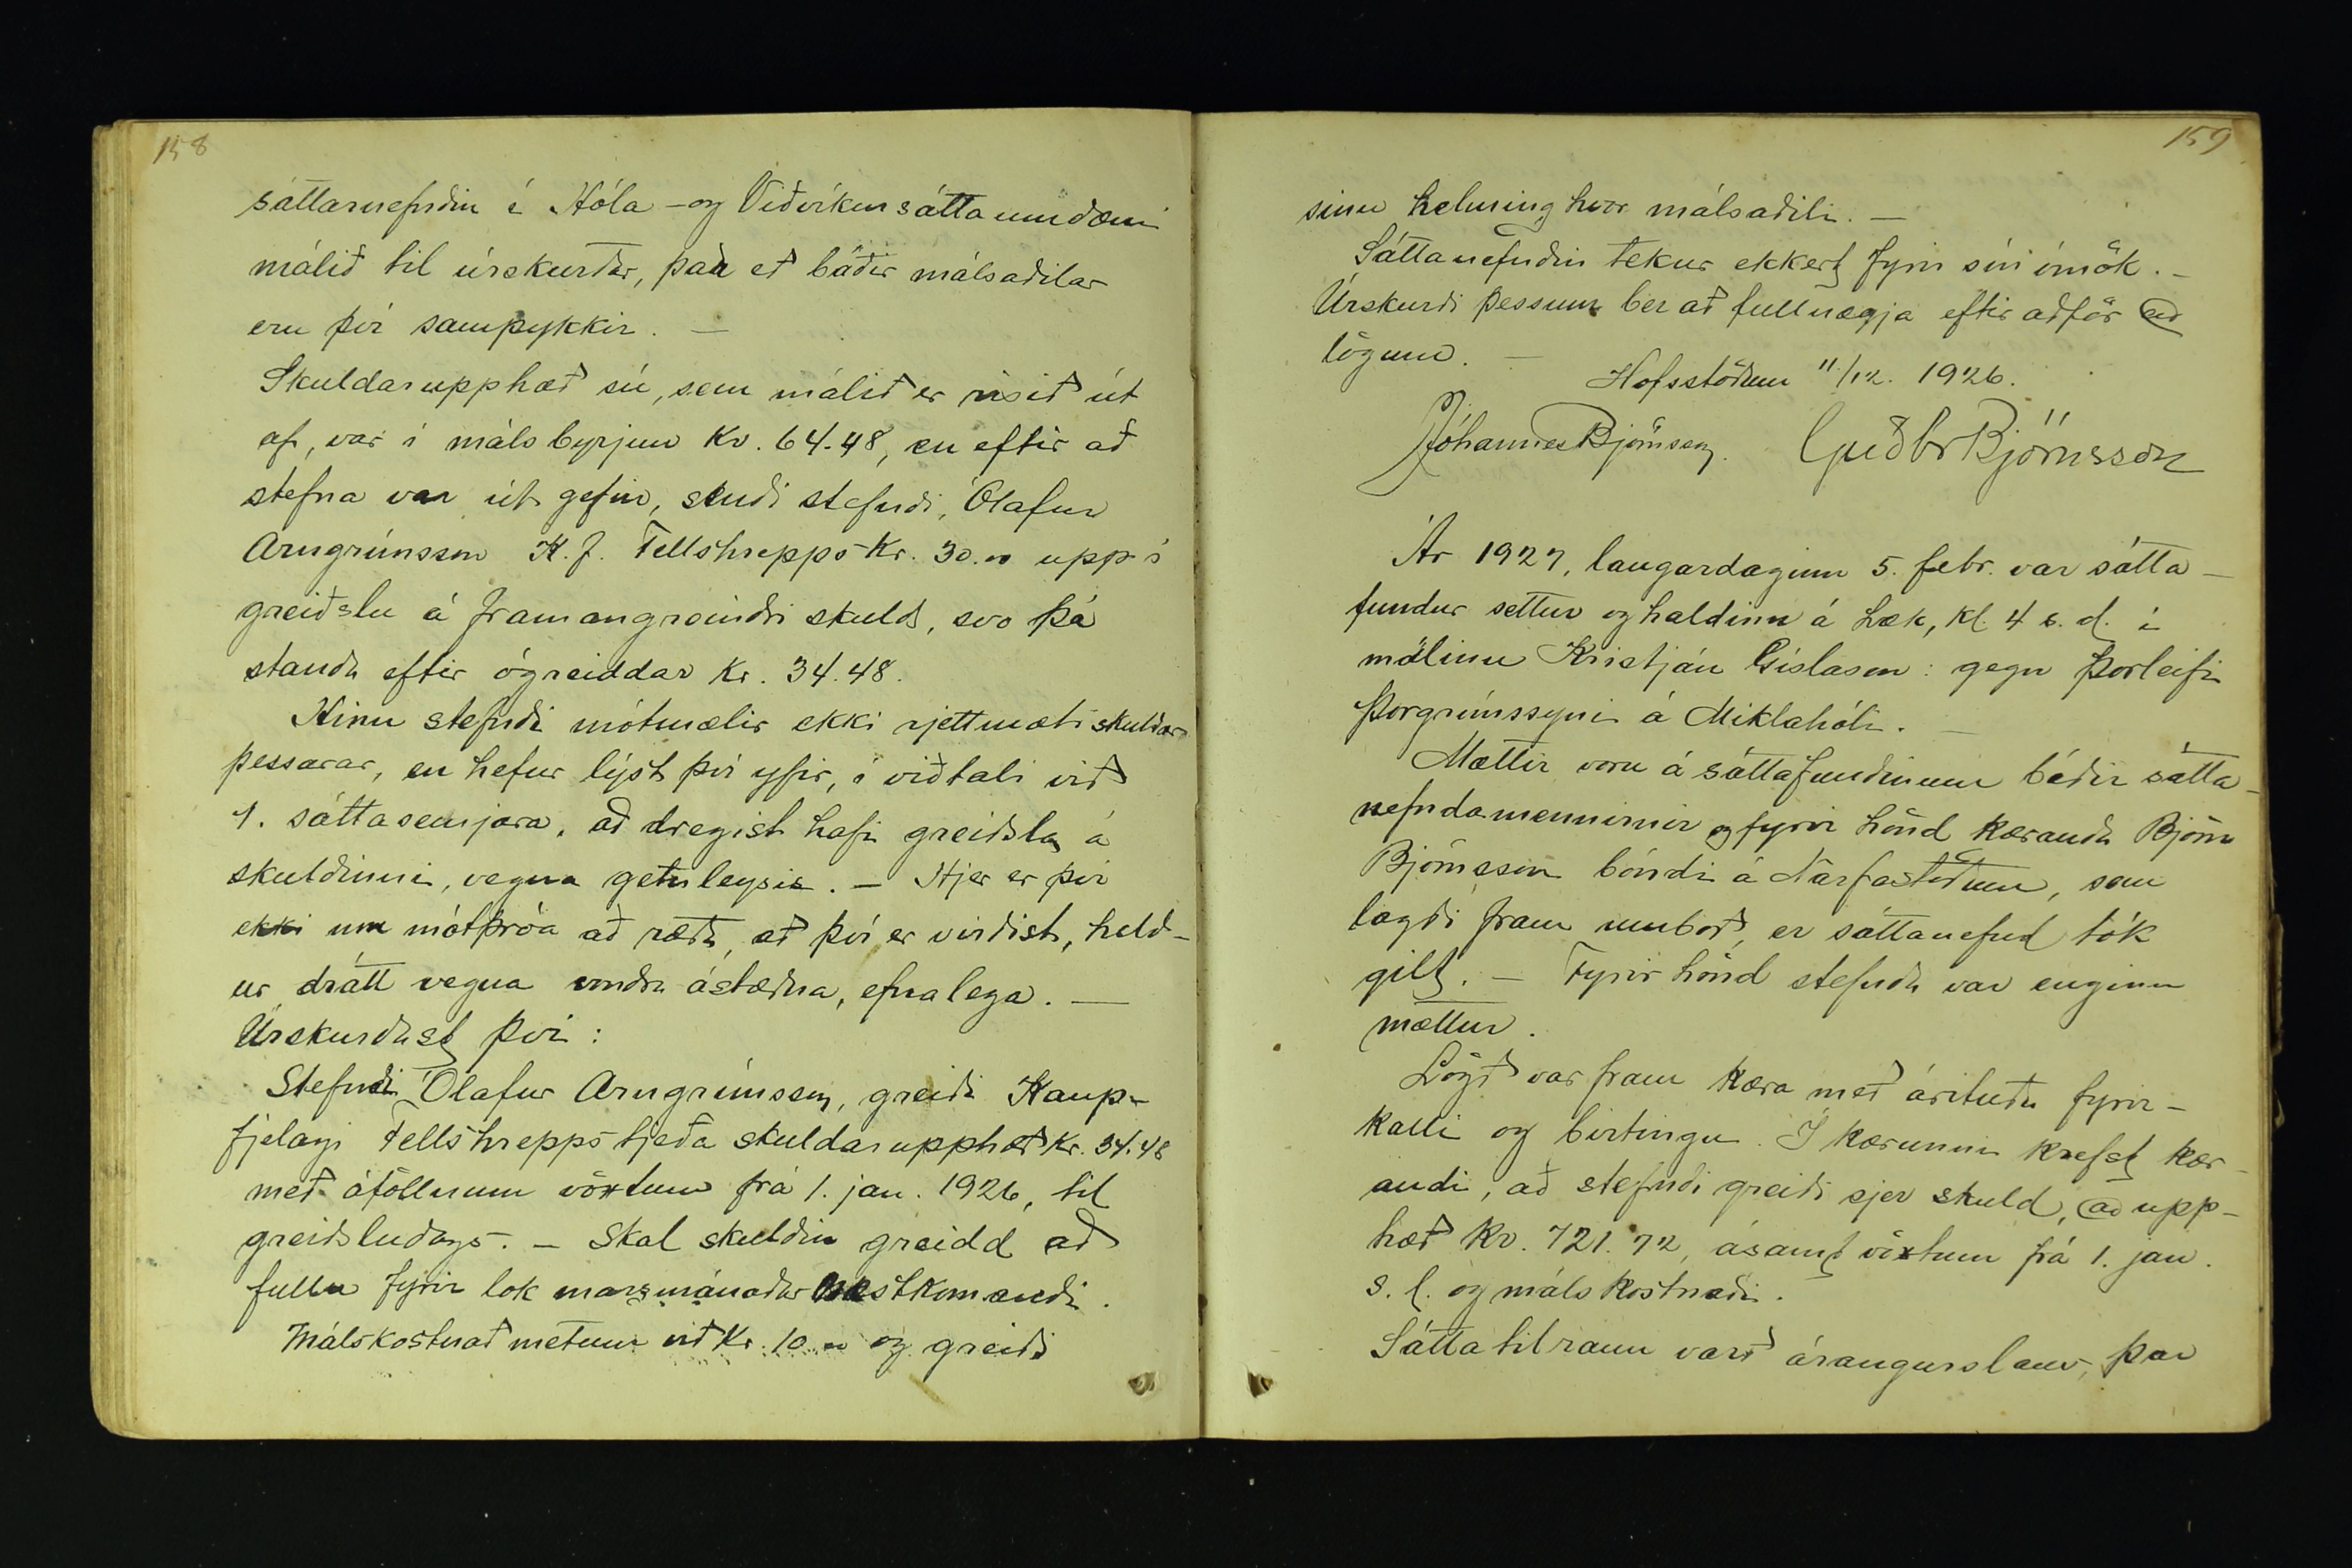 158
sáttarnefndin í Hóla- og Viðvíkursáttaumdæmi
málið til úrskurðar, það eð báðir málsaðilar
eru því samþykkir. —
Skuldarupphæð sú, sem málið er risið út
af, var í málsbyrjun Kr. 64.48, en eftir að
stefna var út gefin, sendi stefndi, Ólafur
Arngrímsson K.f. Fellshrepps Kr. 30.00 upp í
greiðslu á framangreindri skuld, svo þá
standa eftir ógreiddar kr. 34.48.
Hinn stefndi mótmælir ekki rjettmæti skuldar
þessarar, en hefur lýst því yfir, í viðtali við
1. sáttasemjara, að dregist hafi greiðsla á
skuldinni, vegna getuleysis. — Hjer er því
ekki um mótþróa að ræða, að því er virðist, held-
ur drátt vegna vondra ástæðna, efnalega. —
Úrskurðast því:
Stefndi Ólafur Arngrímsson, greiði Kaup-
fjelagi Fellshrepps tjeða skuldarupphæð Kr. 34.48
með áföllnum vöxtum frá 1. jan. 1926, til
greiðsludags. — Skal skuldin greidd að
fullu fyrir lok marsmánaðar næstkomandi.
Málskostnað metum við Kr. 10.00 og greiði
159
sinn helming hvor málsaðili. —
Sáttanefndin tekur ekkert fyrir sín ómök. —
Úrskurði þessum ber að fullnægja eftir aðför að
lögum. —
Hofsstöðum 11/12. 1926.
Jóhannes Björnsson. Guðbr Björnsson
Ár 1927, laugardaginn 5. febr. var sátta-
fundur settur og haldinn á Læk, kl. 4 e. d. í
málinu Kristján Gíslason: gegn Þorleifi
Þorgrímssyni á Miklahóli. —
Mættir voru á sáttafundinum báðir sátta-
nefndamennirnir og fyrir hönd kæranda Björn
Björnsson bóndi á Narfastöðum, sem
lagði fram umboð, er sáttanefnd tók
gilt. — Fyrir hönd stefnda var enginn
mættur.
Lögð var fram kæra með árituðu fyrir-
kalli og birtingu. Í kærunni krefst kær-
andi, að stefndi greiði sjer skuld, að upp-
hæð kr. 721.72, ásamt vöxtum frá 1. jan.
s. l. og málskostnaði.
Sáttatilraun varð árangurslaus, þar